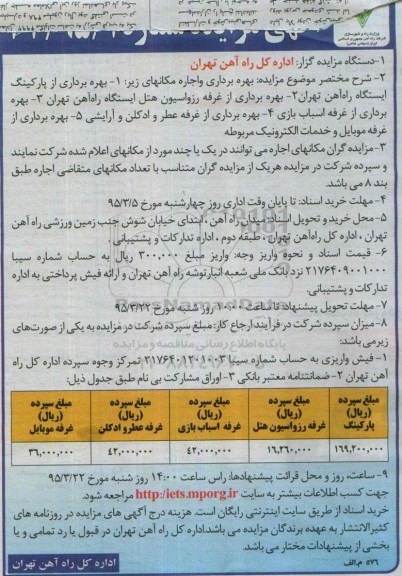 وزارت راه و شهرسازی
شرکت راه آهن جمهوری اسلامی
آگهی مزایده شماره
۱-دستگاه مزایده گزار: اداره کل راه آهن تهران
۲- شرح مختصر موضوع مزایده: بهره برداری واجاره مکانهای زیر: ۱- بهره برداری از پارکینگ
ایستگاه راه‌آهن تهران۲- بهره برداری از غرفه رزواسیون هتل ایستگاه راه‌آهن تهران ۳- بهره
برداری از غرفه اسباب بازی ۴- بهره برداری از غرفه عطر و ادکلن و آرایشی ۵- بهره برداری از
غرفه موبایل و خدمات الکترونیک مربوطه
۳- مزایده گران مکانهای اجاره می توانند در یک یا چند مورد از مکانهای اعلام شده شرکت نمایند
و سپرده شرکت در مزایده هریک از مزایده گران متناسب با تعداد مکانهای متقاضی اجاره طبق
بند ۸ می باشد.
۴- مهلت خرید اسناد: تا پایان وقت اداری روز چهارشنبه مورخ ۹۵/۳/۵
۵- محل خرید و تحویل اسناد: میدان راه آهن ، ابتدای خیابان شوش جنب زمین ورزشی راه آهن
تهران ، اداره کل راه‌آهن تهران ، طبقه دوم ، اداره تدارکات و پشتیبانی .
۶- قیمت اسناد و نحوه واریز وجه: واریز مبلغ ۳۰۰,۰۰۰ ریال به حساب شماره سیبا
۲۱۷۶۴۰۹۰۰۱۰۰۰ نزد بانک ملی شعبه انبارتوشه راه آهن تهران و ارائه فیش پرداختی به اداره
تدارکات و پشتیبانی.
۷- مهلت تحویل پیشنهاد: تا ساعت ۱۰:۰۰ روز شنبه مورخ ۹۵/۳/۲۲
۸- میزان سپرده شرکت در فرآیند ارجاع کار: مبلغ سپرده شرکت در مزایده به یکی از صورت‌های
زیر می باشد:
۱- فیش واریزی به حساب شماره سیبا ۲۱۷۶۴۰۱۲۰۱۰۰۳ تمرکز وجوه سپرده اداره کل راه
آهن تهران ۲- ضمانتنامه معتبر بانکی ۳- اوراق مشارکت بی نام طبق جدول ذیل:
مبلغ سپرده (ریال) پارکینگ | مبلغ سپرده (ریال) غرفه رزواسیون هتل | مبلغ سپرده (ریال) غرفه اسباب بازی | مبلغ سپرده (ریال) غرفه عطر و ادکلن | مبلغ سپرده (ریال) غرفه موبایل
۱۶۹,۲۰۰,۰۰۰ | ۱۶,۲۶۰,۰۰۰ | ۴۲,۰۰۰,۰۰۰ | ۴۲,۰۰۰,۰۰۰ | ۳۶,۰۰۰,۰۰۰
۹- ساعت، روز و محل قرائت پیشنهادها: راس ساعت ۱۴:۰۰ روز شنبه مورخ ۹۵/۳/۲۲
جهت کسب اطلاعات بیشتر به سایت http:/iets.mporg.ir مراجعه شود.
خرید اسناد از طریق سایت اینترنتی رایگان است. هزینه درج آگهی های مزایده در روزنامه های
کثیرالانتشار به عهده برندگان مزایده می باشد.اداره کل راه آهن تهران در قبول یا رد تمامی و یا
بخشی از پیشنهادات مختار می باشد.
۵۷۶ م.الف
اداره کل راه آهن تهران